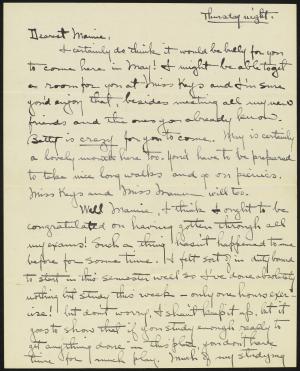 Thursday night.
Dearest Mamie,
I certainly do think it would be bully for you
to come here in May! I might be able to get
a room for you at Miss Keys and I'm sure
you'd enjoy that, besides meeting all my new
friends and the ones you already know.
Betty is crazy for you to come. May is certainly
a lovely month here too. You'd have to be prepared
to take nice long walks and go on picnics.
Miss Keys and Miss will too.
Well Mamie, I think I ought to be
congratulated on having gotten through all
my exams! Such a thing hasn't happened to me
before for some time. I felt sort of in duty bound
to start in this semester well so I've done absolutely
nothing but study this week - only one hours exer-
cise! but don't worry, I shan't keep it up, at it
goes to show that if you study enough really to
get anything done in this place, you don't have
time for much play. Much of my studying